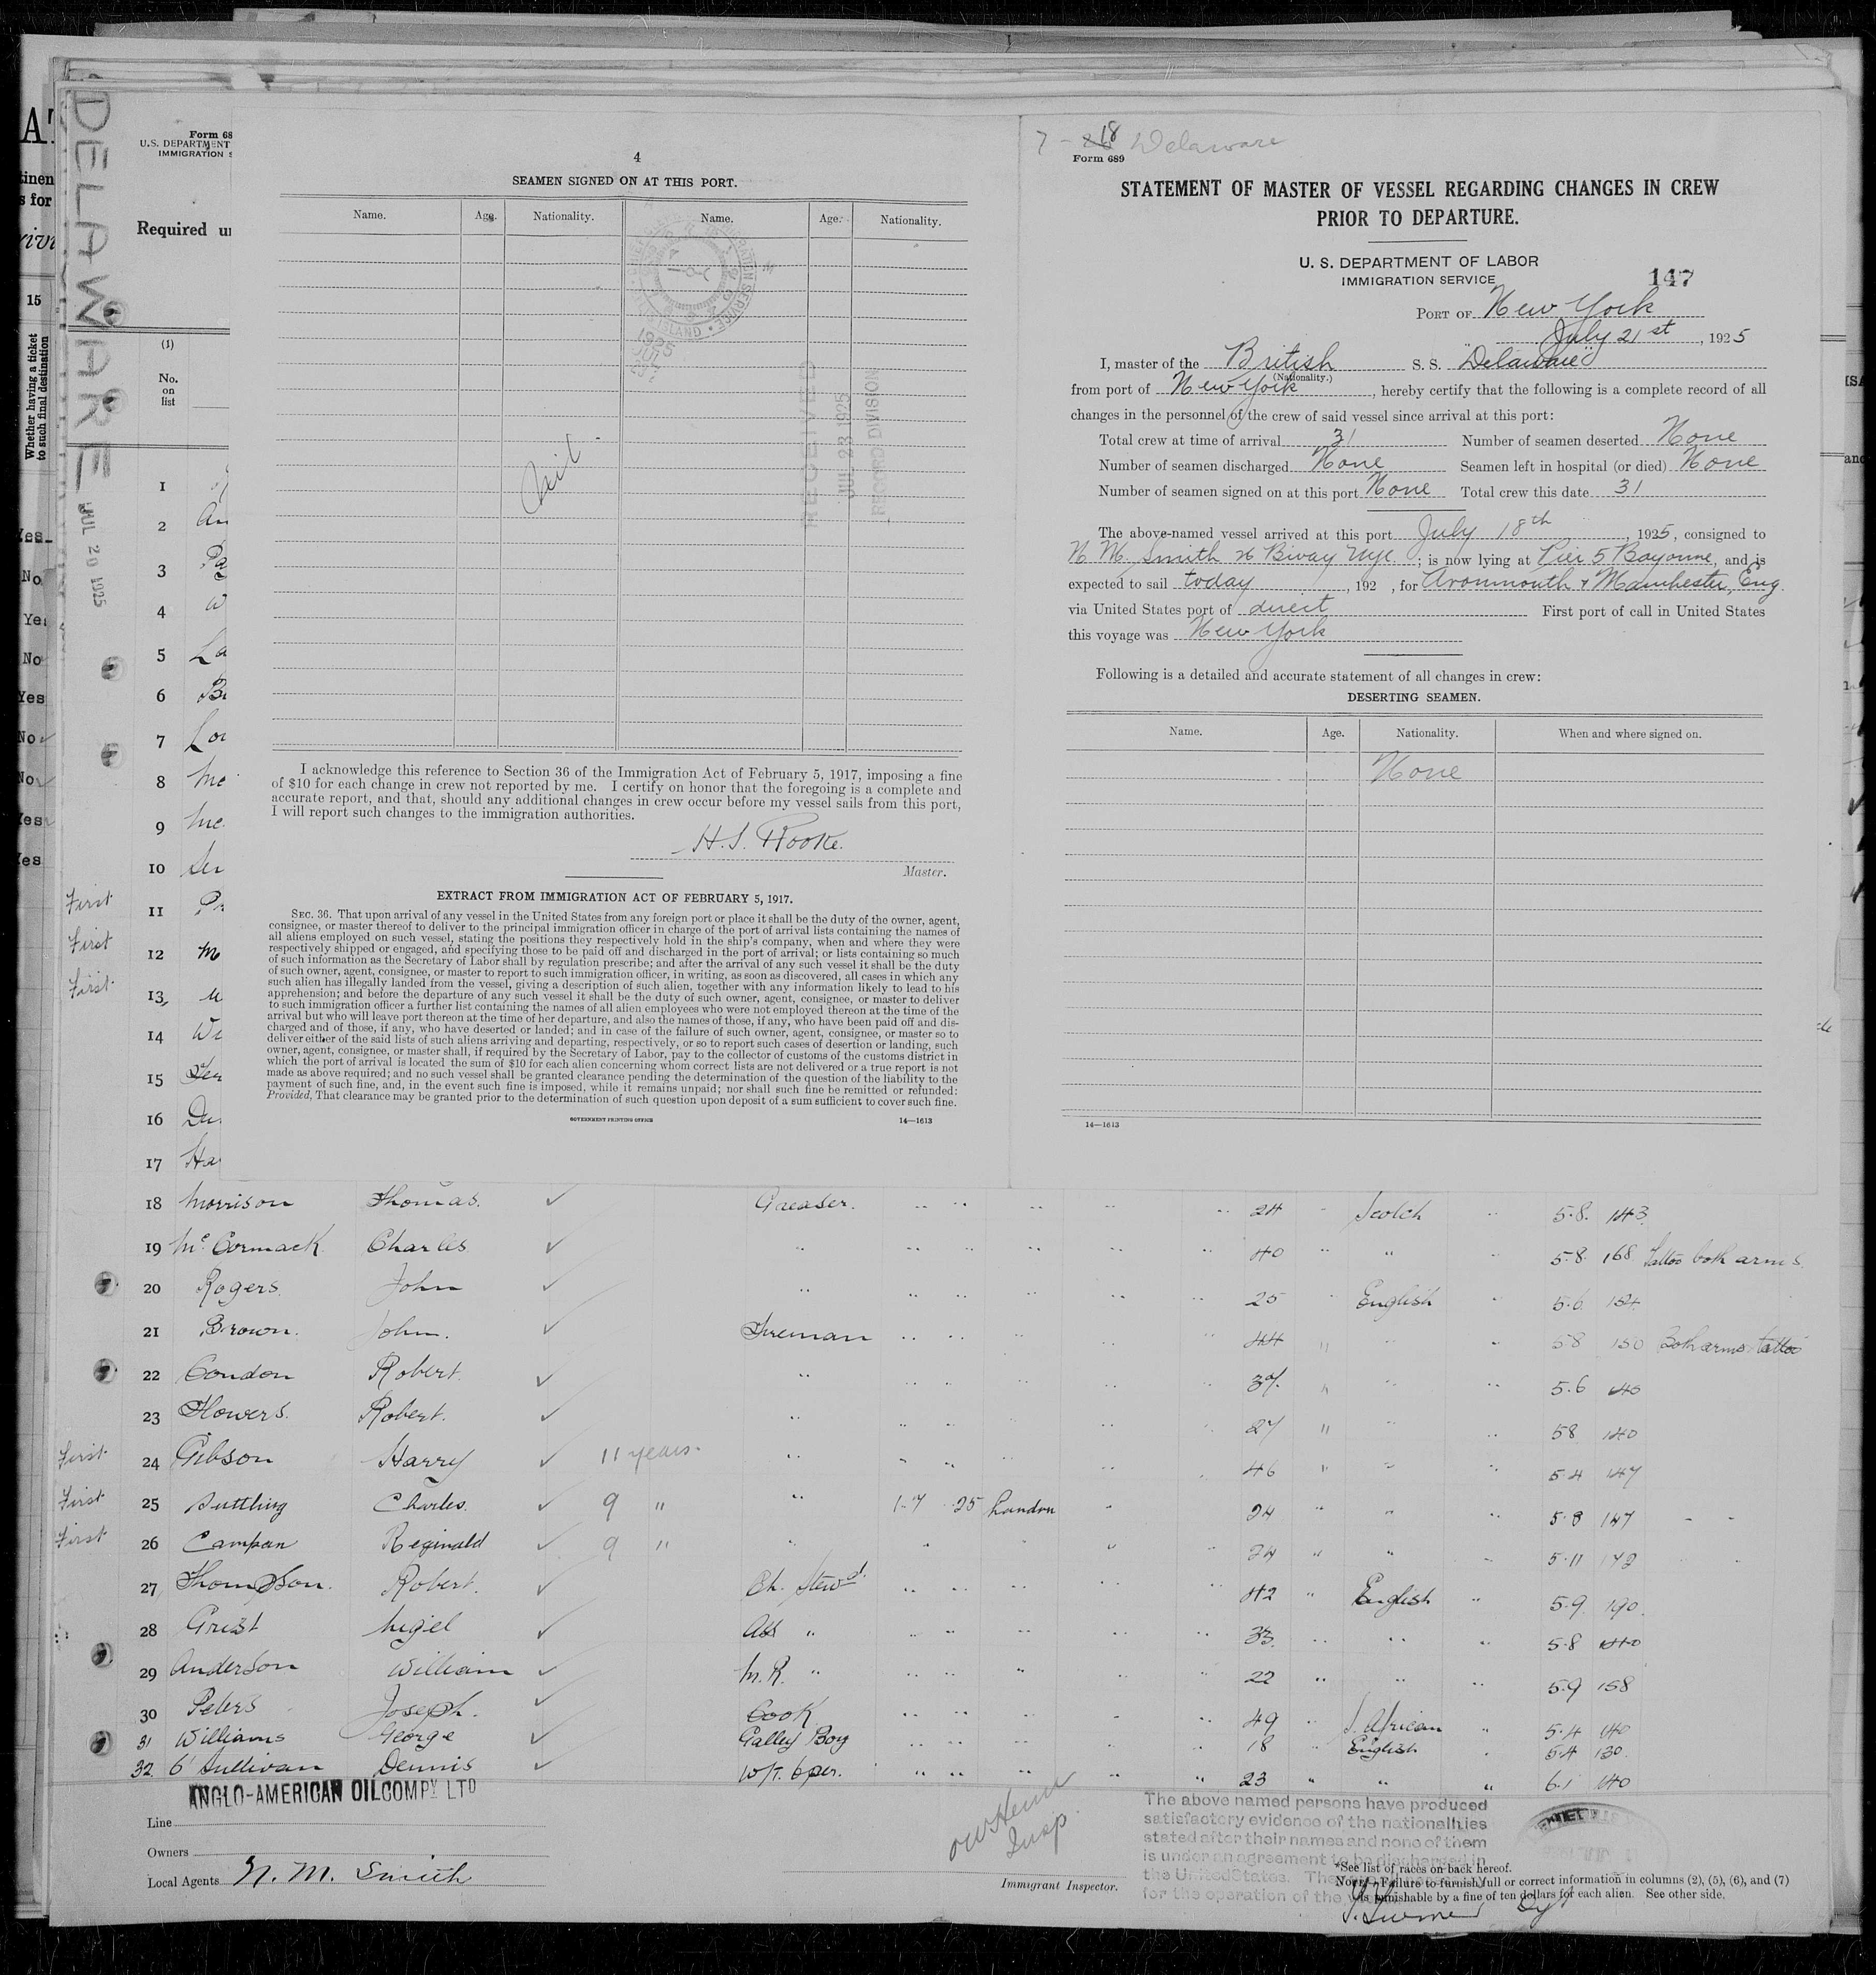 DELAWARE
JUL 20 1925
Form 68
U.S. DEPARTMENT
IMMIGRATION S
Required u
(1)
No.
on
list
15
Whether having a ticket
to such final destination
4
SEAMEN SIGNED ON AT THIS PORT.
Name. Age. Nationality. Name. Age. Nationality.
Nil
RECEIVED
JUL 23 1925
RECORD DIVISION
I acknowledge this reference to Section 36 of the Immigration Act of February 5, 1917, imposing a fine
of $10 for each change in crew not reported by me. I certify on honor that the foregoing is a complete and
accurate report, and that, should any additional changes in crew occur before my vessel sails from this port,
I will report such changes to the immigration authorities.
H.S. Rooke.
Master.
EXTRACT FROM IMMIGRATION ACT OF FEBRUARY 5, 1917.
SEC. 36. That upon arrival of any vessel in the United States from any foreign port or place it shall be the duty of the owner, agent,
consignee, or master thereof to deliver to the principal immigration officer in charge of the port of arrival lists containing the names of
all aliens employed on such vessel, stating the positions they respectively hold in the ship's company, when and where they were
respectively shipped or engaged, and specifying those to be paid off and discharged in the port of arrival; or lists containing so much
of such information as the Secretary of Labor shall by regulation prescribe; and after the arrival of any such vessel it shall be the duty
of such owner, agent, consignee, or master to report to such immigration officer, in writing, as soon as discovered, all cases in which any
such alien has illegally landed from the vessel, giving a description of such alien, together with any information likely to lead to his
apprehension; and before the departure of any such vessel it shall be the duty of such owner, agent, consignee, or master to deliver
to such immigration officer a further list containing the names of all alien employees who were not employed thereon at the time of the
arrival but who will leave port thereon at the time of her departure, and also the names of those, if any, who have been paid off and dis-
charged and of those, if any, who have deserted or landed; and in case of the failure of such owner, agent, consignee, or master so to
deliver either of the said lists of such aliens arriving and departing, respectively, or so to report such cases of desertion or landing, such
owner, agent, consignee, or master shall, if required by the Secretary of Labor, pay to the collector of customs of the customs district in
which the port of arrival is located the sum of $10 for each alien concerning whom correct lists are not delivered or a true report is not
made as above required; and no such vessel shall be granted clearance pending the determination of the question of the liability to the
payment of such fine, and, in the event such fine is imposed, while it remains unpaid; nor shall such fine be remitted or refunded:
Provided, That clearance may be granted prior to the determination of such question upon deposit of a sum sufficient to cover such fine.
GOVERNMENT PRINTING OFFICE 14—1613
7 - 18 Delaware
Form 689
STATEMENT OF MASTER OF VESSEL REGARDING CHANGES IN CREW
PRIOR TO DEPARTURE.
U. S. DEPARTMENT OF LABOR
IMMIGRATION SERVICE
147
PORT OF New York
July 21st, 1925
I, master of the British S. S. "Delaware"
(Nationality.)
from port of New York, hereby certify that the following is a complete record of all
changes in the personnel of the crew of said vessel since arrival at this port:
Total crew at time of arrival 31 Number of seamen deserted None
Number of seamen discharged None Seamen left in hospital (or died) None
Number of seamen signed on at this port None Total crew this date 31
The above-named vessel arrived at this port July 18th, 1925, consigned to
N. M. Smith 26 Bway Nyc.; is now lying at Pier 5 Bayonne, and is
expected to sail today, 192 , for Avonmouth + Manchester, Eng.
via United States port of direct First port of call in United States
this voyage was New York
Following is a detailed and accurate statement of all changes in crew:
DESERTING SEAMEN.
Name. Age. Nationality. When and where signed on.
None
14—1613
1
2 An
3 Pa
4 W
5 La
6 B
7 Lou
8 Mc
9 Mc
10
First 11 Pr
First 12 M
First 13
14 Wi
15
16 Du
17 Ha
18 Morrison Thomas. ✓ Greaser. " " " " " 24 " Scotch " 5.8. 143
19 McCormack Charles ✓ " " " " " " 40 " " " 5.8. 168 Tattoo both arms.
20 Rogers. John ✓ " " " " " " 25 " English " 5.6 154
21 Brown. John. ✓ Fireman " " " " " 44 " " 5.8 150 Both arms tattoo
22 Condon Robert. ✓ " " " " " " 37. " " " 5.6 140
23 Flowers. Robert. ✓ " " " " " 27 " " " 5.8 140
First 24 Gibson Harry ✓ 11 years. " " " " 46 " " " 5.4 147
First 25 Suttling Charles. ✓ 9 " " 1.7 25 London " 24 " " " 5.8 147
First 26 Campan Reginald ✓ 9 " " " " " 24 " " " 5.11 142
27 Thompson. Robert. ✓ Ch. Stewd. " " " " " 42 " English " 5.9. 190.
28 Grist Nigel ✓ Ass " " " " " " 33. " " " 5.8 140
29 Anderson William ✓ M.R. " " " " " " 22 " " " 5.9 158
30 Peters Joseph. ✓ Cook " " " " " 49 " S. African " 5.4 140
31 Williams George ✓ Galley Boy " " " " " 18 " English " 5.4 130.
32. O'Sullivan Dennis ✓ W/T. Oper. " " " " " 23 " " " 6.1 140
ANGLO-AMERICAN OIL COMPY LTD
Line
Owners
Local Agents N. M. Smith
Insp.
Immigrant Inspector.
The above named persons have produced
satisfactory evidence of the nationalities
stated after their names and none of them
is under an agreement to be discharged in
the United States.
for the operation of the
*See list of races on back hereof.
NOTE.—Failure to furnish full or correct information in columns (2), (5), (6), and (7)
is punishable by a fine of ten dollars for each alien. See other side.